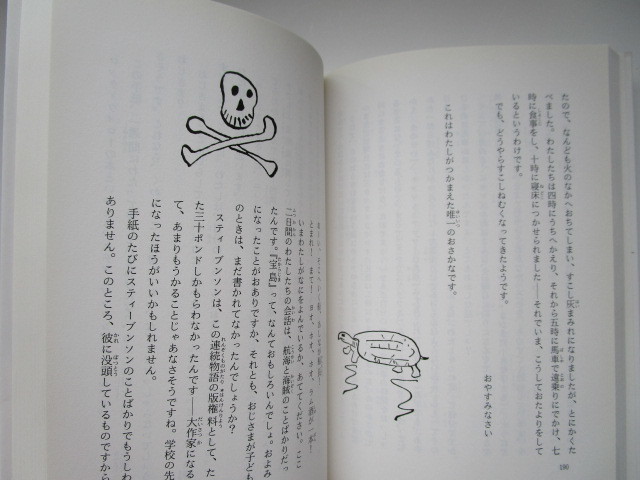 たので、なんども火のなかへおちてしまい、すこし灰まみれになりましたが、とにかくた
べました。わたしたちは四時にうちへかえり、それから五時に馬車で遠乗りにでかけ、七
時に食事をし、十時に寝床につかせられました――それでいま、こうしておたよりをして
いるというわけです。
でも、どうやらすこしねむくなってきたようです。
おやすみなさい
これはわたしがつかまえた唯一のおさかなです。
190
いまわたしがなにをよんでいるか、あててください。ここ
二日間のわたしたちの会話は、航海と海賊のことばかりだっ
たんです。『宝島』って、なんておもしろいんでしょ。およみ
になったことがおありですか、それとも、おじさまが子ども
のときは、まだ書かれてなかったんでしょうか？
スティーブンソンは、この連続物語の版権料として、た
た三十ポンドしかもらわなかったんです――大作家になる
て、あまりもうかることじゃあなさそうですね。学校の先
になったほうがいいかもしれません。
手紙のたびにスティーブンソンのことばかりでもうしわ
ありません。このところ、彼に没頭しているものですから